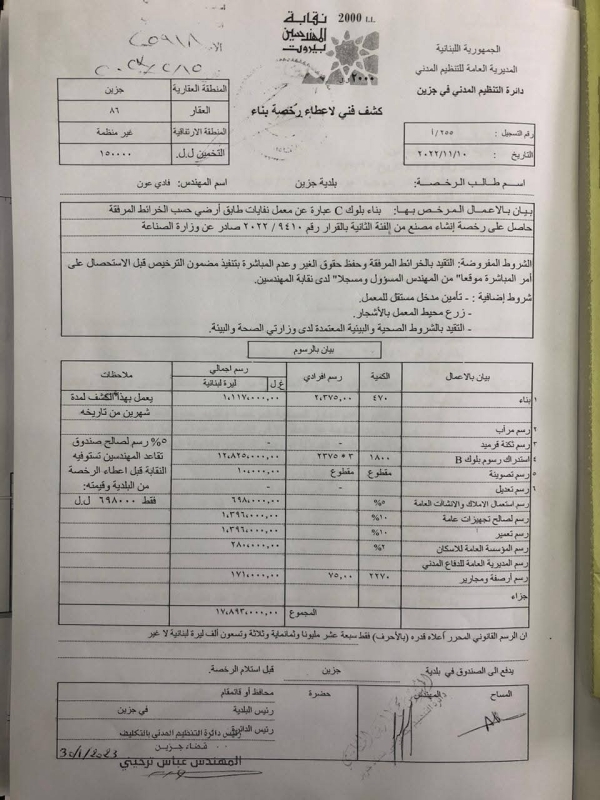 الجمهورية اللبنانية
المديرية العامة للتنظيم المدني
دائرة التنظيم المدني في جزين
ل.ل. 2000
نقابة
المهندسين
بيروت
٢٠٠٠
كشف فني لاعطاء رخصة بناء
رقم التسجيل : ٢٥٥/أ
التاريخ : ٢٠٢٢/١١/١٠
المنطقة العقارية جزين
العقار ٨٦
المنطقة الارتفاقية غير منظمة
التخمين ل.ل. ١٥٠٠٠٠
اسم طالب الرخصة: بلدية جزين اسم المهندس: فادي عون
بيان بالاعمال المرخص بها: بناء بلوك C عبارة عن معمل نفايات طابق أرضي حسب الخرائط المرفقة
حاصل على رخصة إنشاء مصنع من الفئة الثانية بالقرار رقم ٩٤١٠ / ٢٠٢٢ صادر عن وزارة الصناعة
الشروط المفروضة: التقيد بالخرائط المرفقة وحفظ حقوق الغير وعدم المباشرة بتنفيذ مضمون الترخيص قبل الاستحصال على
أمر المباشرة موقعا" من المهندس المسؤول ومسجلا" لدى نقابة المهندسين.
شروط إضافية : - تأمين مدخل مستقل للمعمل.
- زرع محيط المعمل بالأشجار.
- التقيد بالشروط الصحية والبيئية المعتمدة لدى وزارتي الصحة والبيئة.
بيان بالرسوم
بيان بالاعمال الكمية رسم إفرادي رسم اجمالي ليرة لبنانية غ.ل ملاحظات
١ بناء ٤٧٠ ٢،٣٧٥،٠٠ ١،١١٧،٠٠٠،٠٠ يعمل بهذا الكشف لمدة
شهرين من تاريخه
٢ رسم مرآب
٣ رسم تكنة قرميد - - ٥% رسم لصالح صندوق
٤ استدراك رسوم بلوك B ١٨٠٠ ٣ * ٢٣٧٥ ١٢،٨٢٥،٠٠٠،٠٠ تقاعد المهندسين تستوفيه
٥ رسم تصوينة مقطوع مقطوع ١٠،٠٠٠،٠٠ النقابة قبل اعطاء الرخصة
٦ رسم تعديل - - من البلدية وقيمته:
رسم استعمال الاملاك والانشات العامة ٥% ٦٩٨،٠٠٠،٠٠ فقط ٦٩٨٠٠٠ ل.ل
رسم لصالح تجهيزات عامة ١٠% ١،٣٩٦،٠٠٠،٠٠
رسم تعمير ١٠% ١،٣٩٦،٠٠٠،٠٠
رسم المؤسسة العامة للاسكان ٢% ٢٨٠،٠٠٠،٠٠
رسم المديرية العامة للدفاع المدني
رسم أرصفة ومجارير ٢٢٧٠ ٧٥،٠٠ ١٧١،٠٠٠،٠٠
جزاء
المجموع ١٧،٨٩٣،٠٠٠،٠٠
ان الرسم القانوني المحرر أعلاه قدره (بالأحرف) فقط سبعة عشر مليونا وثمانماية وثلاثة وتسعون ألف ليرة لبنانية لا غير
يدفع الى الصندوق في بلدية جزين قبل استلام الرخصة.
المساح
المهندس
حضرة محافظ أو قائمقام
رئيس البلدية في جزين
رئيس الدائرة
رئيس دائرة التنظيم المدني بالتكليف
قضاء جزين
المهندس عباس ترحيني
30/1/2023